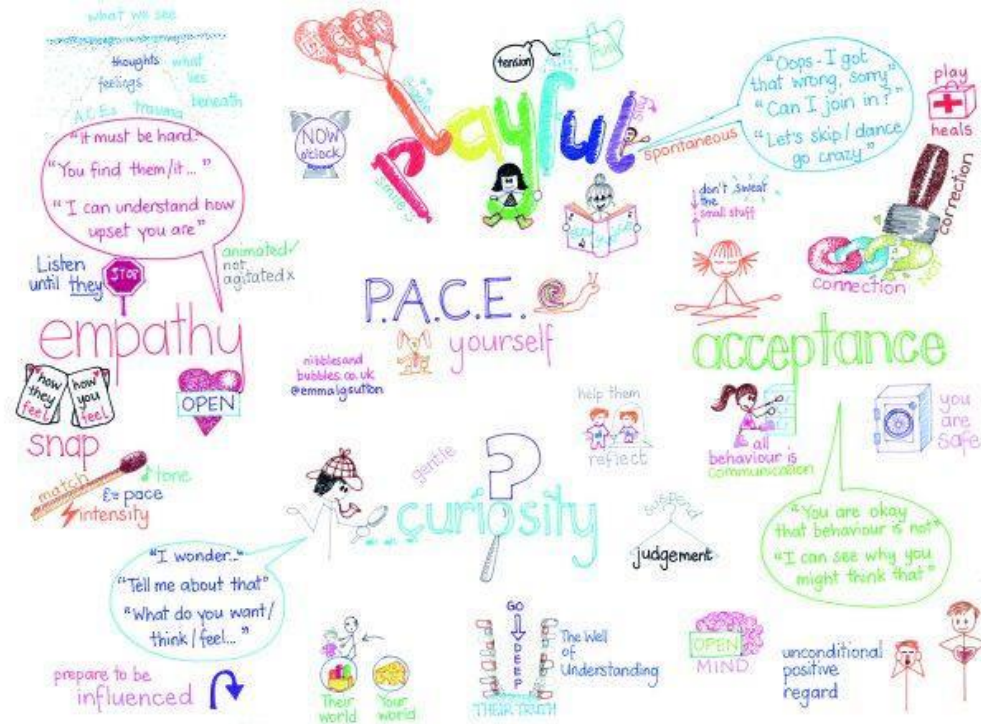 what we see
thoughts
feelings
what
lies
beneath
A.C.Es trauma
"It must be hard."
"You find them/it..."
"I can understand how
upset you are"
Listen
until they
STOP
animated✓
not
agitated x
empathy
how
they
feel
how
you
feel
OPEN
snap
match
tone
£= pace
intensity
LIGHT
tension
fun
NOW
o'clock
playful
smile
spontaneous
"Oops - I got
that wrong, sorry"
"Can I join in?"
"Let's skip / dance
go crazy"
play
heals
don't sweat
the
small stuff
connection
connection
P.A.C.E.
yourself
nibblesand
bubbles.co.uk
@emmalgsutton
acceptance
all
behaviour is
communication
you
are
safe
"You are okay
that behaviour is not"
"I can see why you
might think that"
help them
reflect
gentle
?
...curiosity
suspend
judgement
"I wonder.."
"Tell me about that"
"What do you want/
think/feel..."
prepare to be
influenced
Their
world
Your
world
GO
DEEP
THEIR TRUTH
The Well
of
Understanding
OPEN
MIND
unconditional
positive
regard